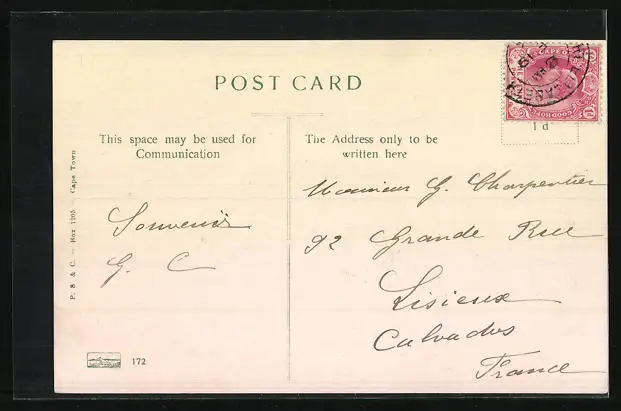 POST CARD
This space may be used for
Communication
The Address only to be
written here
1d
Souvenir
G. C
Monsieur G. Charpentier
92 Grande Rue
Lisieux
Calvados
France
P. S & C. — Box 1205 — Cape Town
172
CAPE OF
GOOD HOPE